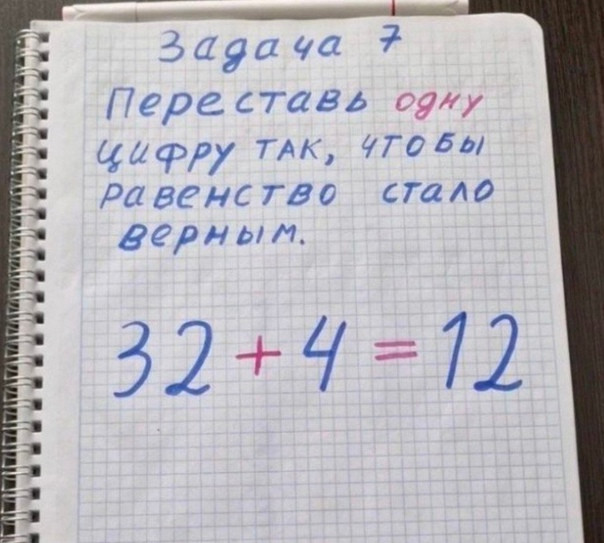 Задача 7
Переставь одну
цифру так, чтобы
равенство стало
верным.
32 + 4 = 12